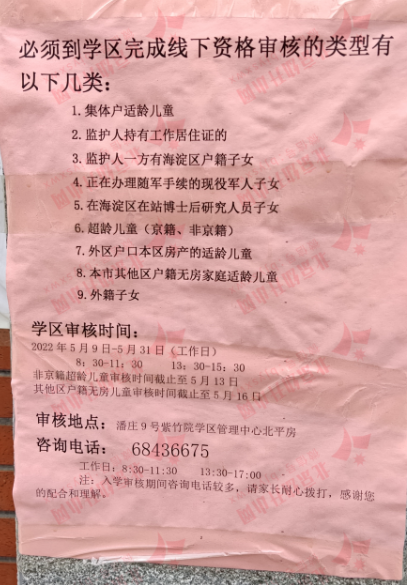 必须到学区完成线下资格审核的类型有
以下几类：
1. 集体户适龄儿童
2. 监护人持有工作居住证的
3. 监护人一方有海淀区户籍子女
4. 正在办理随军手续的现役军人子女
5. 在海淀区在站博士后研究人员子女
6. 超龄儿童（京籍、非京籍）
7. 外区户口本区房产的适龄儿童
8. 本市其他区户籍无房家庭适龄儿童
9. 外籍子女
学区审核时间：
2022 年 5 月 9 日-5 月 31 日（工作日）
8：30-11：30 13：30-15：30
非京籍超龄儿童审核时间截止至 5 月 13 日
其他区户籍无房儿童审核时间截止至 5 月 16 日
审核地点：潘庄 9 号紫竹院学区管理中心北平房
咨询电话： 68436675
工作日：8:30-11:30 13:30-17:00
注：入学审核期间咨询电话较多，请家长耐心拨打，感谢您
的配合和理解。